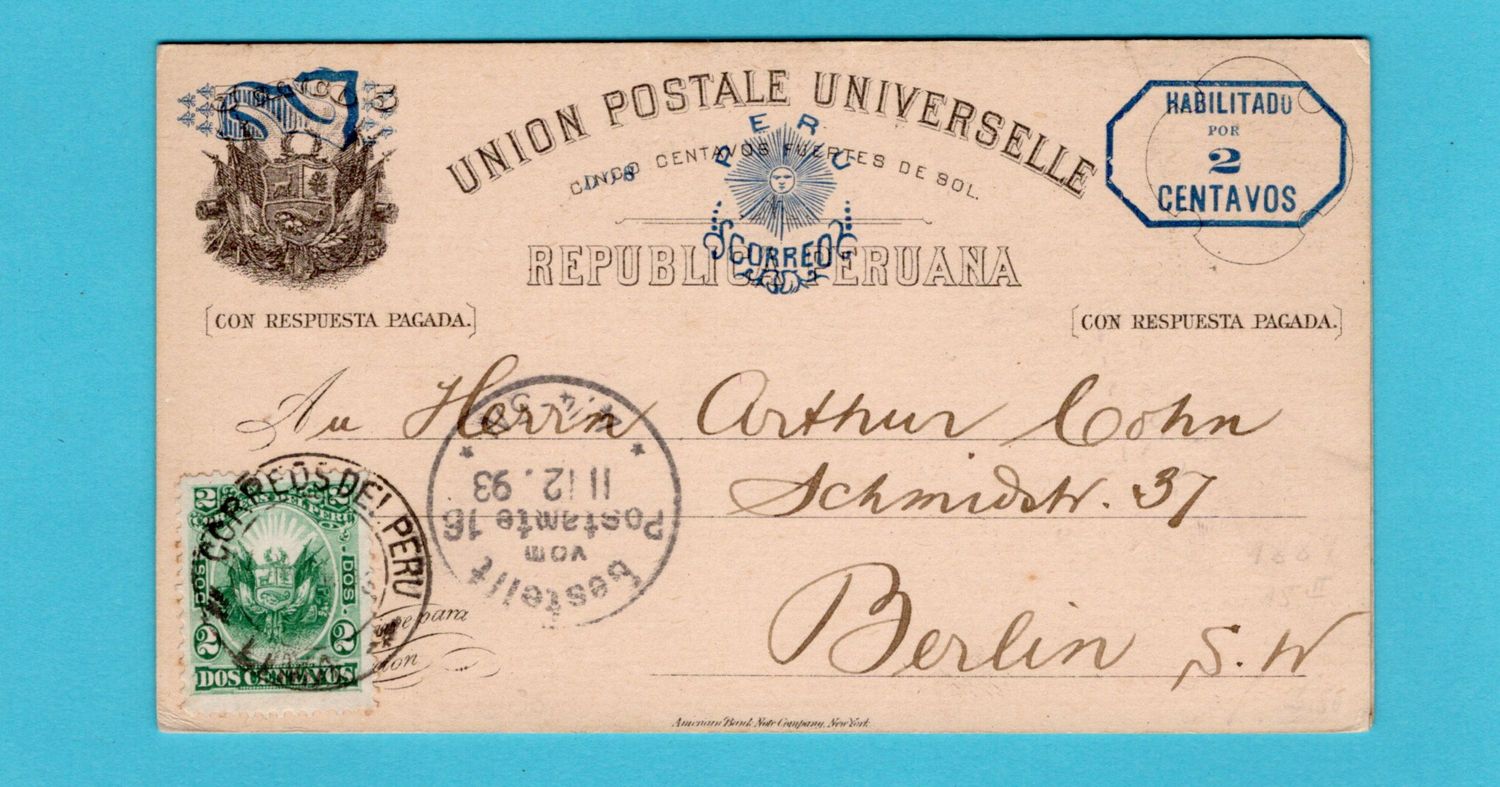 UNION POSTALE UNIVERSELLE
PERU
CINCO CENTAVOS FUERTES DE SOL.
CORREOS
REPUBLICA PERUANA
HABILITADO
POR
2
CENTAVOS
[CON RESPUESTA PAGADA.]
[CON RESPUESTA PAGADA.]
An Herrn Arthur Cohn
Schmidstr. 37
Berlin S.W
Bestellt
vom
Postamte 16
11 12. 93
CORREOS DEL PERU
LIMA
2 2
DOS DOS.
2 2
DOS CENTAVOS
para
American Bank Note Company, New York.